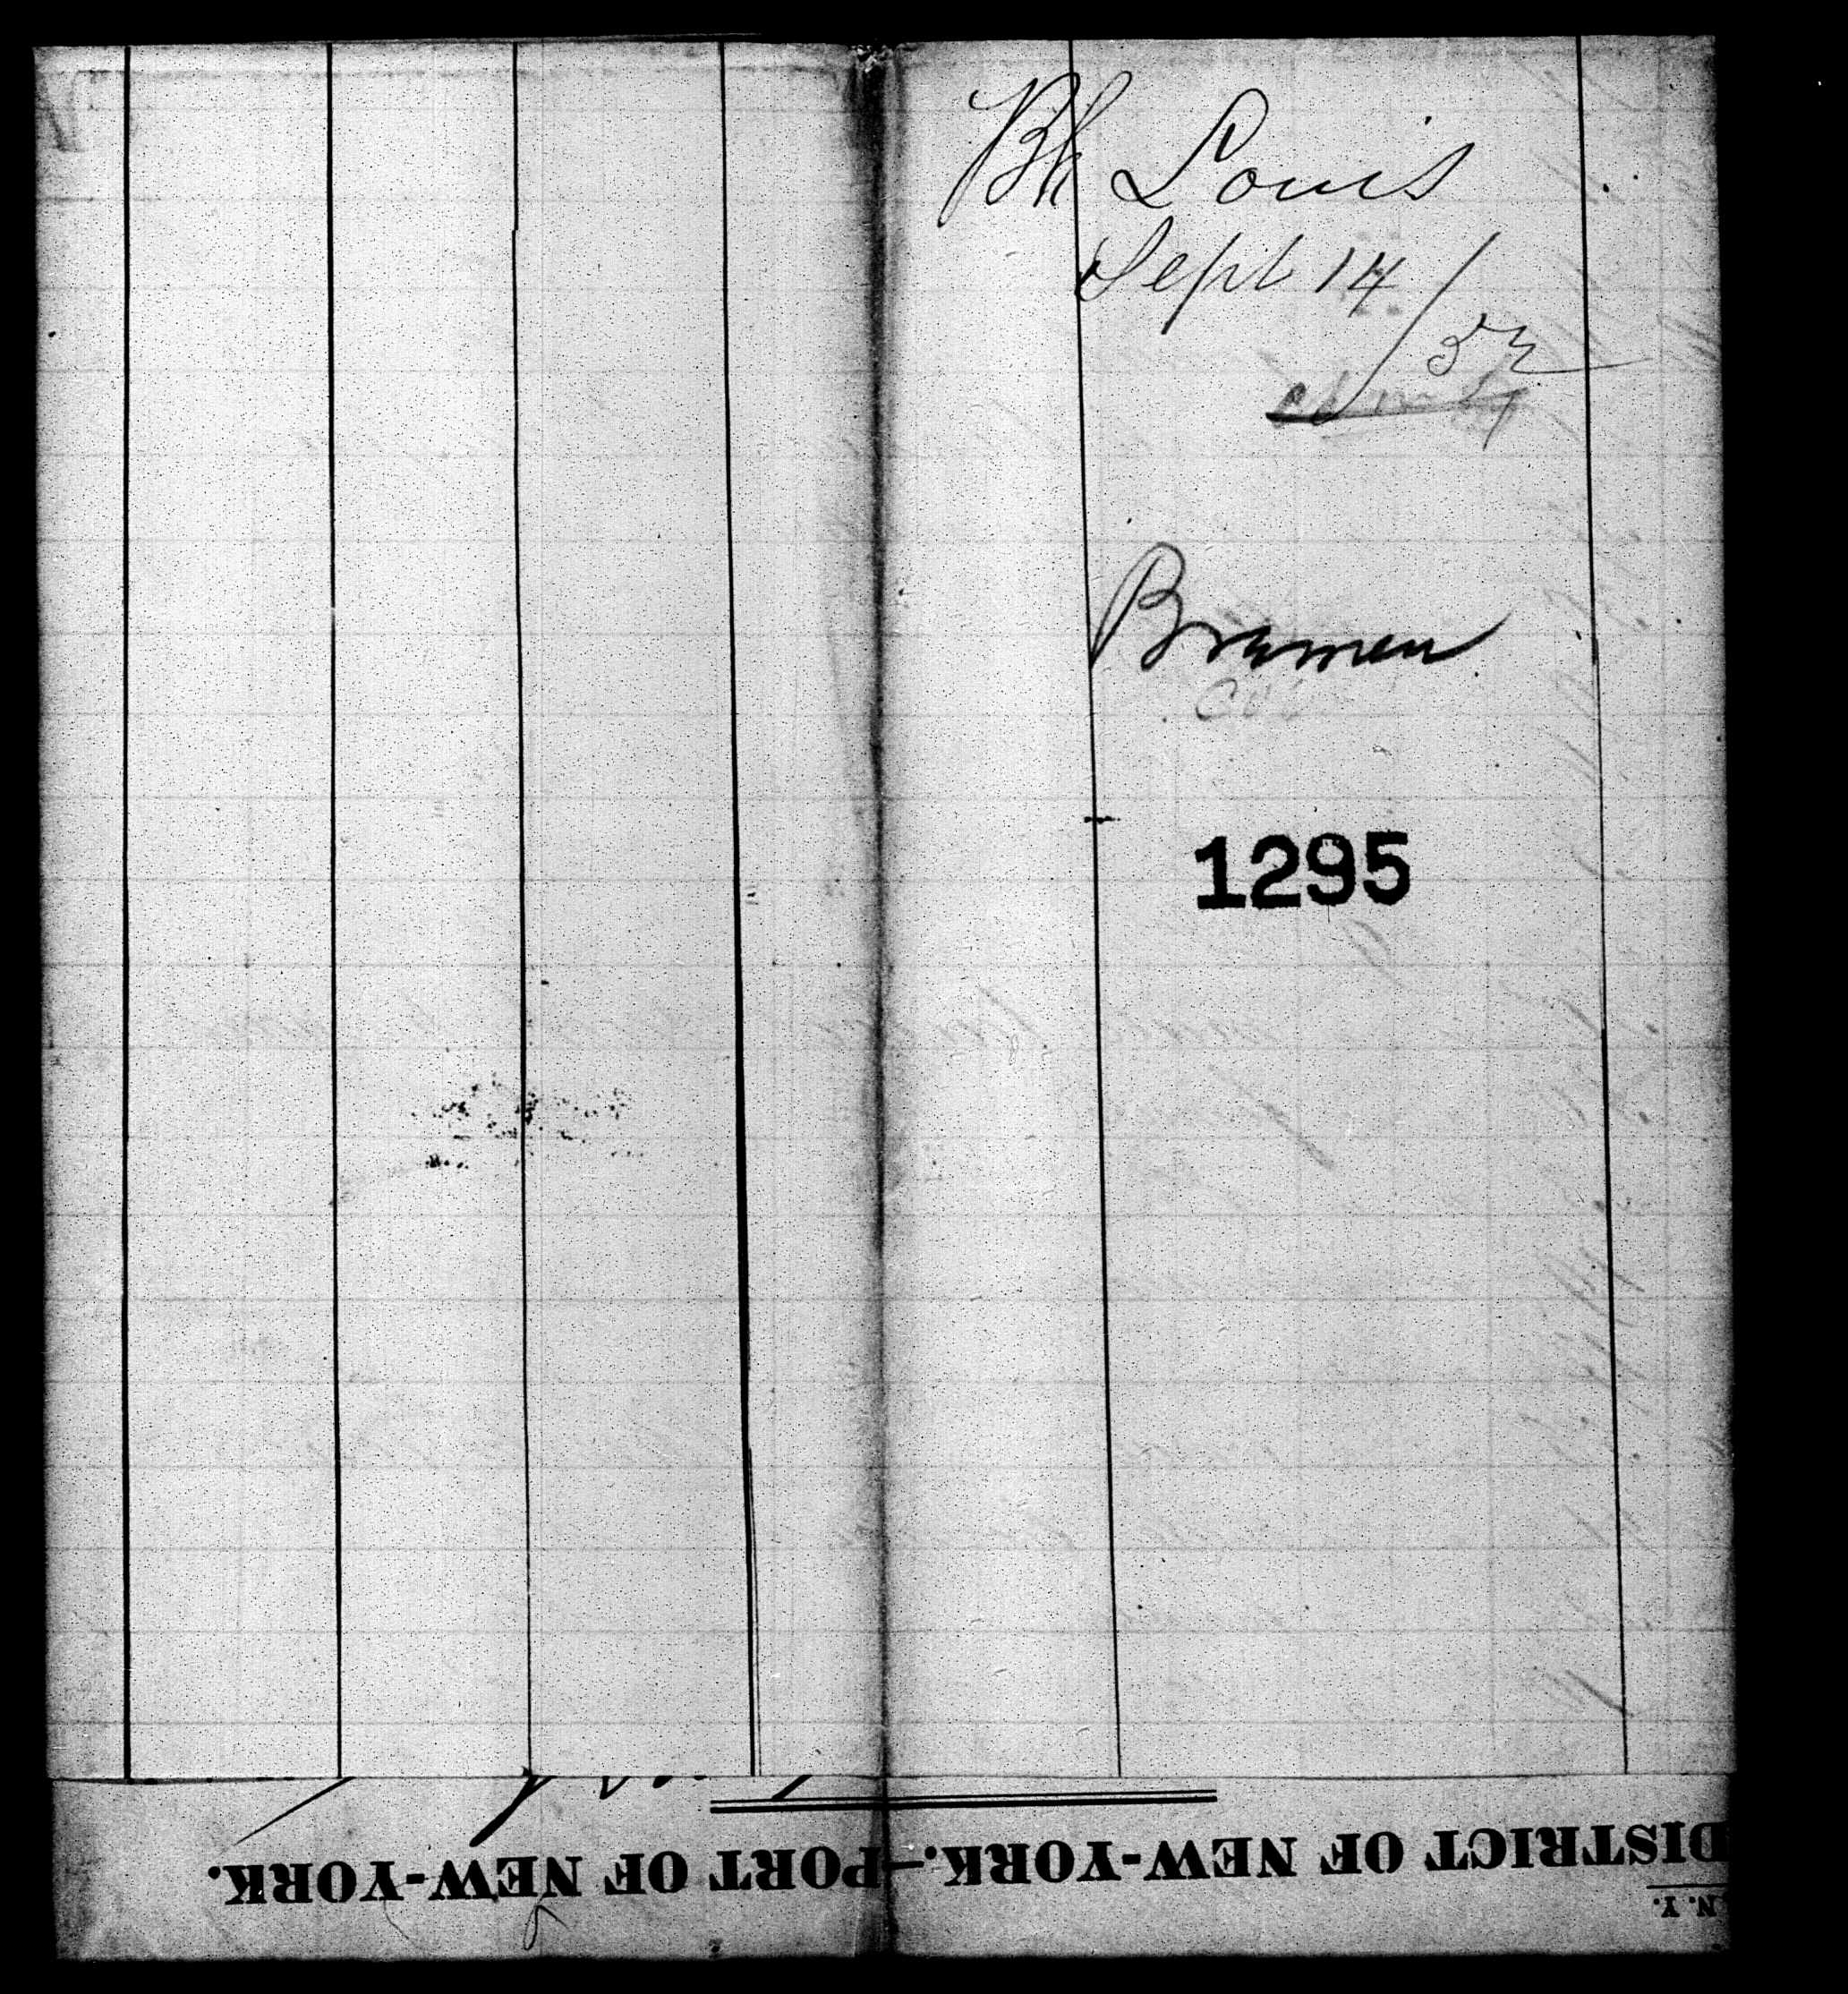 Bk Louis
Sept 14
/52
Bremen
1295
DISTRICT OF NEW-YORK.—PORT OF NEW-YORK.
N. Y.